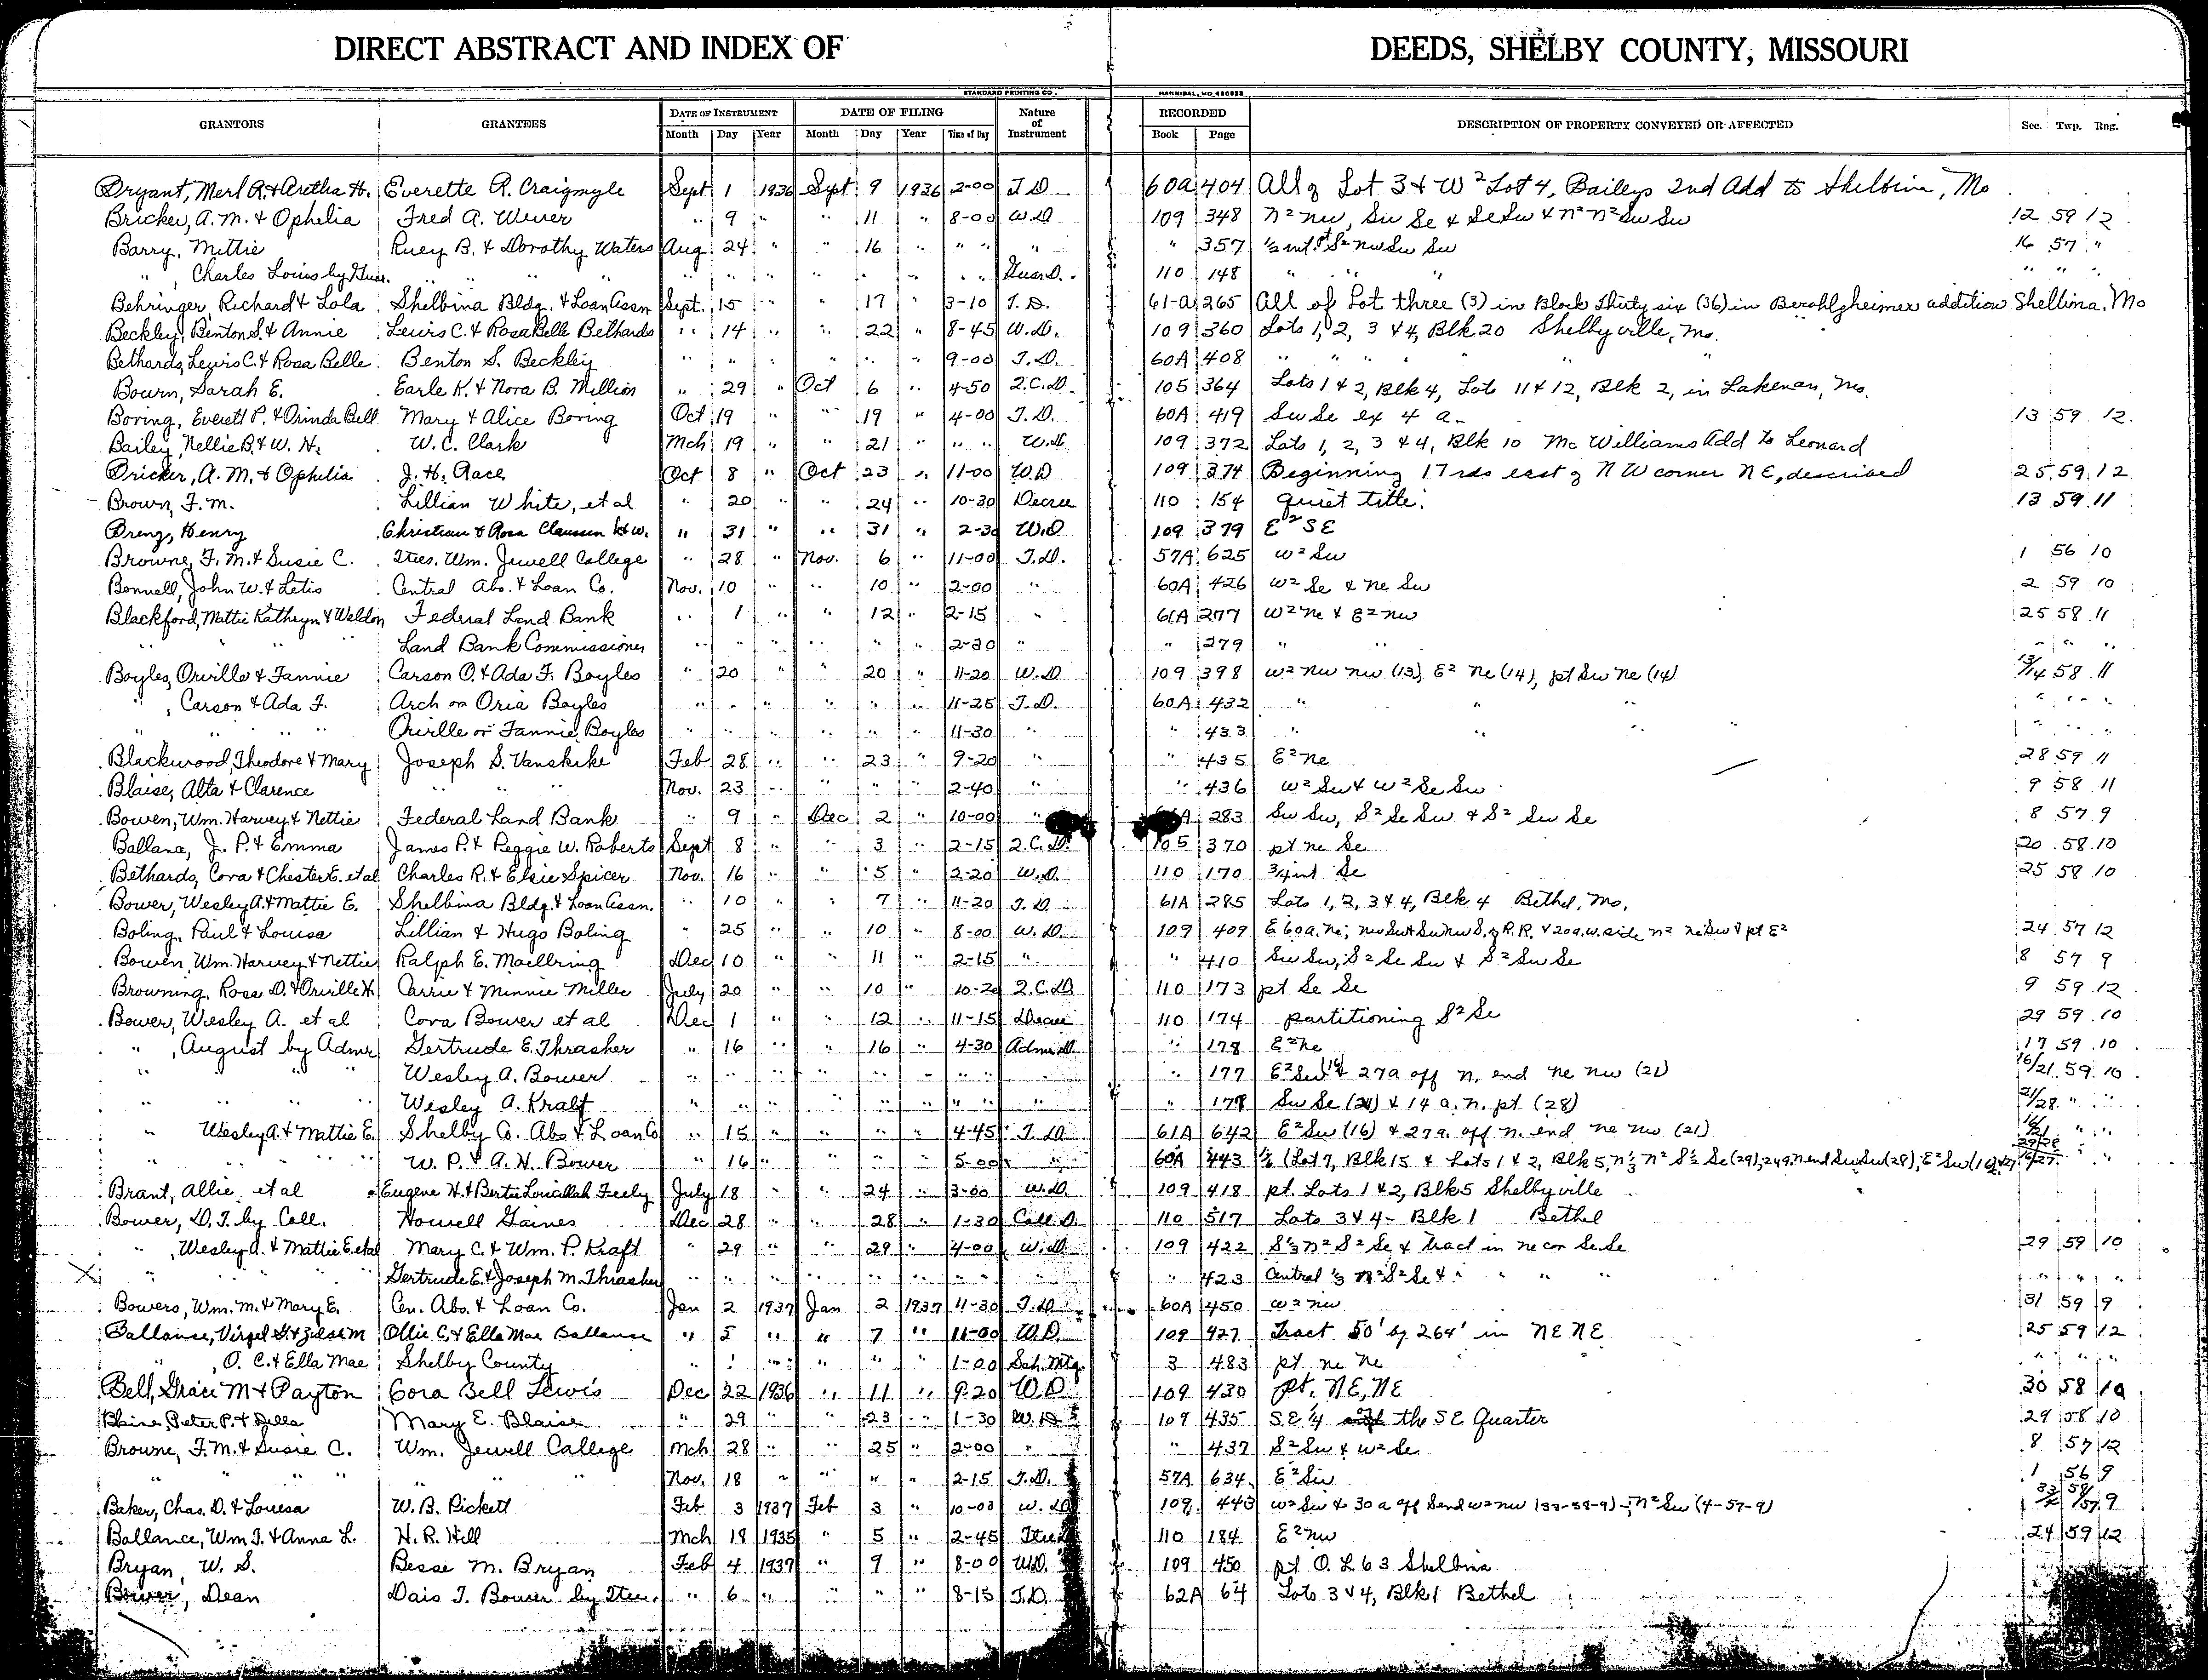 DIRECT ABSTRACT AND INDEX OF DEEDS, SHELBY COUNTY, MISSOURI
STANDARD PRINTING CO. HANNIBAL, MO
GRANTORS GRANTEES DATE OF INSTRUMENT DATE OF FILING Nature of Instrument RECORDED DESCRIPTION OF PROPERTY CONVEYED OR AFFECTED Sec. Twp. Rng.
Month Day Year Month Day Year Time of Day Book Page
Bryant, Merl R. & Aretha H. Everette R. Craigmyle Sept 1 1936 Sept 9 1936 2-00 T D 60A 404 All of Lot 3 & W² Lot 4, Baileys 2nd Add to Shelbina, Mo
Bricker, A. M. & Ophelia Fred A. Wever " 9 " " 11 " 8-00 W.D 109 348 N² NW, SW SE & SE SW & N² N² SW SW 12 59 12
Barry, Mittie Ruey B. & Dorothy Waters Aug. 24 " " 16 " " " " " 357 ½ int. pt S² NW SW SW 16 57 "
" , Charles Louis by Guar. " " " " " " " " " " " Guar D. 110 148 " " " " " "
Behringer, Richard & Lola Shelbina Bldg. & Loan Assn Sept. 15 " " 17 " 3-10 T. D. 61-A 265 All of Lot three (3) in Block Thirty six (36) in Berahlzheimer addition Shelbina, Mo
Beckley, Benton S. & Annie Lewis C. & Rosa Belle Bethards " 14 " " 22 " 8-45 W.D. 109 360 Lots 1, 2, 3 & 4, Blk 20 Shelbyville, Mo.
Bethards, Lewis C. & Rosa Belle Benton S. Beckley " " " " " " 9-00 T.D. 60A 408 " " " " " "
Bourn, Sarah E. Earle K. & Nora B. Million " 29 " Oct 6 " 4-50 2.C.D. 105 364 Lots 1 & 2, Blk 4, Lots 11 & 12, Blk 2, in Lakenan, Mo.
Boring, Everett P. & Orinda Bell Mary & Alice Boring Oct 19 " " 19 " 4-00 T.D. 60A 419 SW SE ex 4 a. 13 59 12
Bailey, Nellie B. & W. H. W. C. Clark Mch 19 " " 21 " " " W.D 109 372 Lots 1, 2, 3 & 4, Blk 10 McWilliams Add to Leonard
Bricker, A. M. & Ophelia J. H. Race Oct 8 " Oct 23 " 11-00 W.D 109 374 Beginning 17 rds east of NW corner NE, described 25 59 12
Brown, F. M. Lillian White, et al " 20 " 24 " 10-30 Decree 110 154 quiet title. 13 59 11
Brenz, Henry Christian & Rosa Claussen H & W. " 31 " " 31 " 2-30 W.D 109 379 E² SE
Browne, F. M. & Susie C. Ttees. Wm. Jewell College " 28 " Nov. 6 " 11-00 T.D. 57A 625 W² SW 1 56 10
Bonnell, John W. & Letis Central Abs. & Loan Co. Nov. 10 " " 10 " 2-00 " 60A 426 W² SE & NE SW 2 59 10
Blackford, Mattie Kathryn & Weldon Federal Land Bank " 1 " " 12 " 2-15 " 61A 277 W² NE & E² NW 25 58 11
" " " Land Bank Commissioner " " " " " " 2-30 " " 279 " " " " "
Boyles, Orville & Fannie Carson O. & Ada F. Boyles " 20 " 20 " 11-20 W.D 109 398 W² NW NW (13), E² NE (14), pt SW NE (14) 13/14 58 11
" , Carson & Ada F. Arch or Oria Boyles " " " " " " 11-25 T.D. 60A 432 " " " " " "
" " " Orville or Fannie Boyles " " " " " " 11-30 " " 433 " " " " " "
Blackwood, Theodore & Mary Joseph S. Vanskike Feb 28 " " 23 " 9-20 " " 435 E² NE 28 59 11
Blaise, Alta & Clarence " " " Nov. 23 " " " " 2-40 " " 436 W² SW & W² SE SW 9 58 11
Bowen, Wm. Harvey & Nettie Federal Land Bank " 9 " Dec 2 " 10-00 " 61A 283 SW SW, S² SE SW & S² SW SE 8 57 9
Ballana, J. P. & Emma James P. & Peggie W. Roberts Sept 8 " " 3 " 2-15 2.C.D. 105 370 pt NE SE 20 58 10
Bethards, Cora & Chester E. et al Charles R. & Elsie Spicer Nov. 16 " " 5 " 2-20 W.D. 110 170 ¾ int SE 25 58 10
Bower, Wesley A. & Mattie E. Shelbina Bldg. & Loan Assn. " 10 " 7 " 11-20 T.D. 61A 285 Lots 1, 2, 3 & 4, Blk 4 Bethel, Mo.
Boling, Paul & Louisa Lillian & Hugo Boling " 25 " " 10 " 8-00 W.D. 109 409 E 60a. NE; NW SW & SW NW S. of R.R. & 20a. W. side N² NE SW & pt E² 24 57 12
Bowen, Wm. Harvey & Nettie Ralph E. Moellring Dec 10 " " 11 " 2-15 " " 410 SW SW, S² SE SW & S² SW SE 8 57 9
Browning, Rosa D. & Orville H. Carrie & Minnie Miller July 20 " " 10 " 10-20 2.C.D 110 173 pt SE SE 9 59 12
Bower, Wesley A. et al Cora Bower et al Dec 1 " " 12 " 11-15 Decree 110 174 partitioning S² SE 29 59 10
" , August by Admr. Gertrude E. Thrasher " 16 " " 16 " 4-30 Admr D. " 178 E² NE 17 59 10
" " " Wesley A. Bower " " " " " " " " " 177 E² SW 16 & 27a off N. end NE NW (21) 16/21 59 10
" " " Wesley A. Kraft " " " " " " " " " 179 SW SE (21) & 14 a. N. pt (28) 21/28 " "
" Wesley A. & Mattie E. Shelby Co. Abs & Loan Co " 15 " " " " 4-45 T.D 61A 642 E² SW (16) & 27a. off N. end NE NW (21) 16/21 " "
" " " W. P. & A. H. Bower " 16 " " " " 5-00 " 60A 443 ½ (Lot 7, Blk 15 & Lots 1 & 2, Blk 5, N⅓ N² S½ SE (29), 24a. N end SW SW (28), E² SW (16) & 27
Brant, Allie et al Eugene H. & Bertie Louallah Feely July 18 " " 24 " 3-00 W.D. 109 418 pt. Lots 1 & 2, Blk 5 Shelbyville
Bower, D. T. by Coll. Howell Gaines Dec 28 " " 28 " 1-30 Coll D. 110 517 Lots 3 & 4 - Blk 1 Bethel
" , Wesley A. & Mattie E. et al Mary C. & Wm. P. Kraft " 29 " " 29 " 4-00 W.D. 109 422 S⅓ N² S² SE & tract in NE cor SE SE 29 59 10
" " Gertrude E. & Joseph M. Thrasher " " " " " " " " " 423 Central ⅓ N² S² SE & " " " " " "
Bowers, Wm. M. & Mary E. Cen. Abs. & Loan Co. Jan 2 1937 Jan 2 1937 11-30 T.D. 60A 450 W² NW 31 59 9
Ballance, Virgel G. & Zelah M Ollie C. & Ella Mae Ballance " 5 " " 7 " 11-00 W.D. 109 427 Tract 50' by 264' in NE NE 25 59 12
" , O. C. & Ella Mae Shelby County " " " " " " 1-00 Sch. Mtg. 3 483 pt NE NE " " "
Bell, Graci M & Payton Cora Bell Lewis Dec 22 1936 " 11 " 9-20 W.D 109 430 pt. NE, NE 30 58 10
Blaise, Peter P. & Della Mary E. Blaise " 29 " " 23 " 1-30 W.D 109 435 S.E. ¼ of the SE Quarter 29 58 10
Browne, F. M. & Susie C. Wm. Jewell College Mch 28 " " 25 " 2-00 " " 437 S² SW & W² SE 8 57 12
" " " " Nov. 18 " " " " 2-15 T.D. 57A 634 E² SW 1 56 9
Baker, Chas. D. & Louesa W. B. Pickett Feb 3 1937 Feb 3 " 10-00 W.D 109 443 W² SW & 30 a off S end W² NW (33-58-9) - N² SW (4-57-9) 33/4 58/57 9
Ballance, Wm T. & Anna L. H. R. Hill Mch 18 1935 " 5 " 2-45 110 184 E² NW 24 59 12
Bryan, W. S. Besse M. Bryan Feb 4 1937 " 9 " 8-00 W.D. 109 450 pt O. L. 63 Shelbina
Bower, Dean Dais T. Bower by Ttee. " 6 " " " " 8-15 T.D. 62A 64 Lots 3 & 4, Blk 1 Bethel